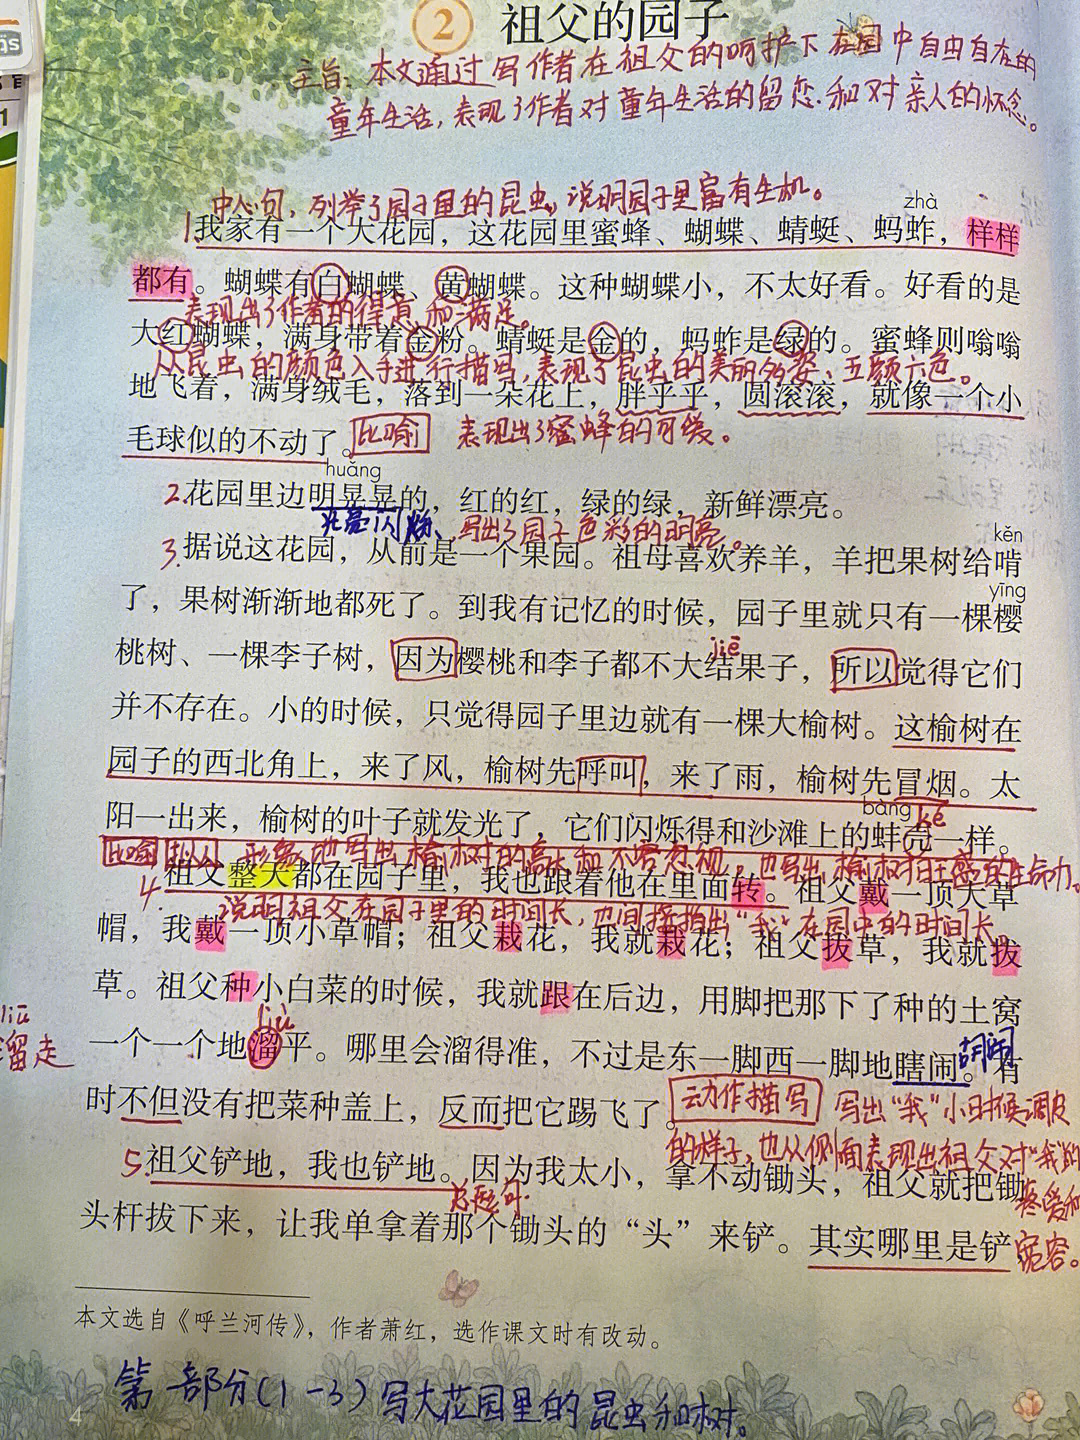 2 祖父的园子
主旨：本文通过写作者在祖父的呵护下在园中自由自在的
童年生活，表现了作者对童年生活的留恋.和对亲人的怀念。
中心句，列举了园子里的昆虫，说明园子里富有生机。
zhà
1.我家有一个大花园，这花园里蜜蜂、蝴蝶、蜻蜓、蚂蚱，样样
都有。蝴蝶有白蝴蝶、黄蝴蝶。这种蝴蝶小，不太好看。好看的是
表现出了作者的得意和满足。
大红蝴蝶，满身带着金粉。蜻蜓是金的，蚂蚱是绿的。蜜蜂则嗡嗡
从昆虫的颜色入手进行描写，表现了昆虫的美丽多姿、五颜六色。
地飞着，满身绒毛，落到一朵花上，胖乎乎，圆滚滚，就像一个小
毛球似的不动了。比喻 表现出了蜜蜂的可爱。
huǎng
2.花园里边明晃晃的，红的红，绿的绿，新鲜漂亮。
光亮闪烁、写出了园子色彩的明亮。
kěn
3.据说这花园，从前是一个果园。祖母喜欢养羊，羊把果树给啃
yīng
了，果树渐渐地都死了。到我有记忆的时候，园子里就只有一棵樱
jiē
桃树、一棵李子树，因为樱桃和李子都不大结果子，所以觉得它们
并不存在。小的时候，只觉得园子里边就有一棵大榆树。这榆树在
园子的西北角上，来了风，榆树先呼叫，来了雨，榆树先冒烟。太
bàng ké
阳一出来，榆树的叶子就发光了，它们闪烁得和沙滩上的蚌壳一样。
比喻 拟人 形象地写出榆树的高大和不容忽视，也写出榆树旺盛的生命力。
4.祖父整天都在园子里，我也跟着他在里面转。祖父戴一顶大草
说明祖父在园子里的时间长，也间接指出“我”在园中的时间长。
帽，我戴一顶小草帽；祖父栽花，我就栽花；祖父拔草，我就拔
草。祖父种小白菜的时候，我就跟在后边，用脚把那下了种的土窝
liù
liū
溜走
一个一个地溜平。哪里会溜得准，不过是东一脚西一脚地瞎闹。有
胡闹
时不但没有把菜种盖上，反而把它踢飞了。动作描写 写出“我”小时候调皮
的样子，也从侧面表现出祖父对“我”的
疼爱和
宽容。
5.祖父铲地，我也铲地。因为我太小，拿不动锄头，祖父就把锄
总起句.
头杆拔下来，让我单拿着那个锄头的“头”来铲。其实哪里是铲
本文选自《呼兰河传》，作者萧红，选作课文时有改动。
第一部分（1－3）写大花园里的昆虫和树。
4